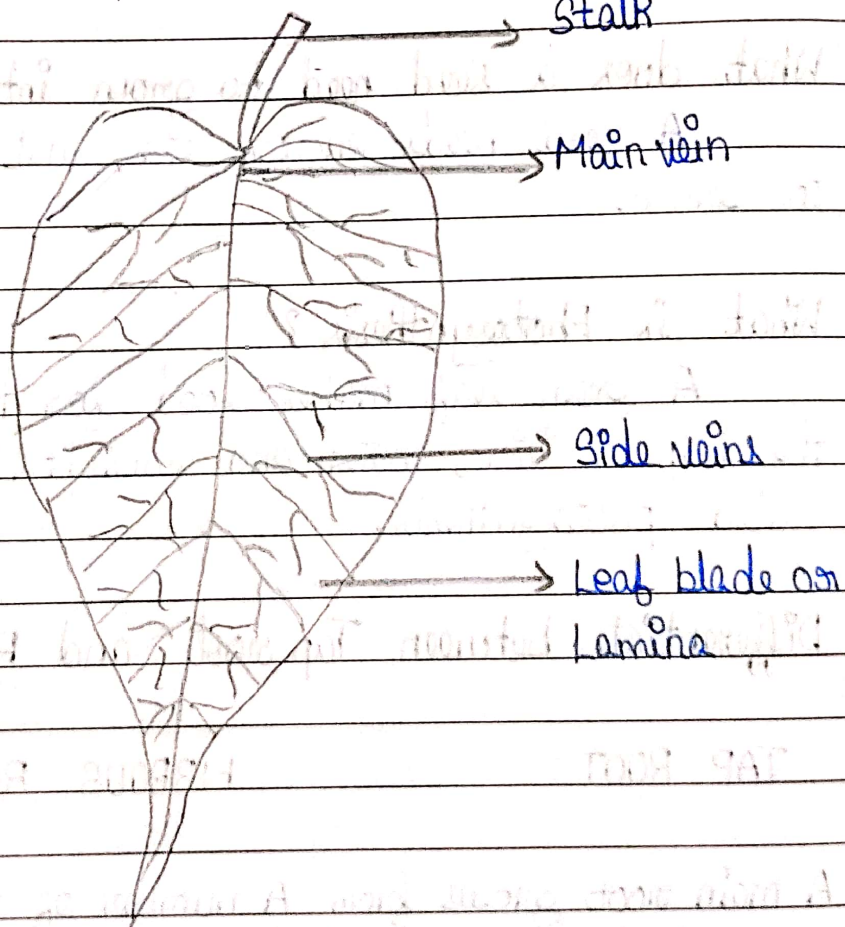 Stalk
Main vein
Side veins
Leaf blade or
Lamina